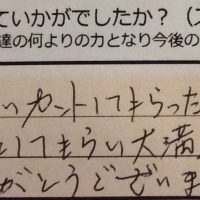 ていかがでしたか？（ス
達の何よりの力となり今後の
いカットしてもらった
してもらい大満
がとうござい ま